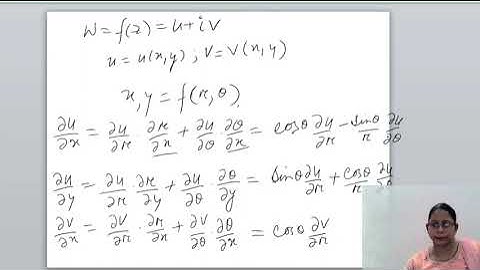 W = f(z) = u + iV
u = u(x,y) ; V = V(x,y)
x, y = f(r, θ)
∂u/∂x = ∂u/∂r · ∂r/∂x + ∂u/∂θ · ∂θ/∂x = cosθ ∂u/∂r − sinθ/r ∂u/∂θ
∂u/∂y = ∂u/∂r · ∂r/∂y + ∂u/∂θ · ∂θ/∂y = sinθ ∂u/∂r + cosθ/r ∂u/∂θ
∂V/∂x = ∂V/∂r · ∂r/∂x + ∂V/∂θ · ∂θ/∂x = cosθ ∂V/∂r